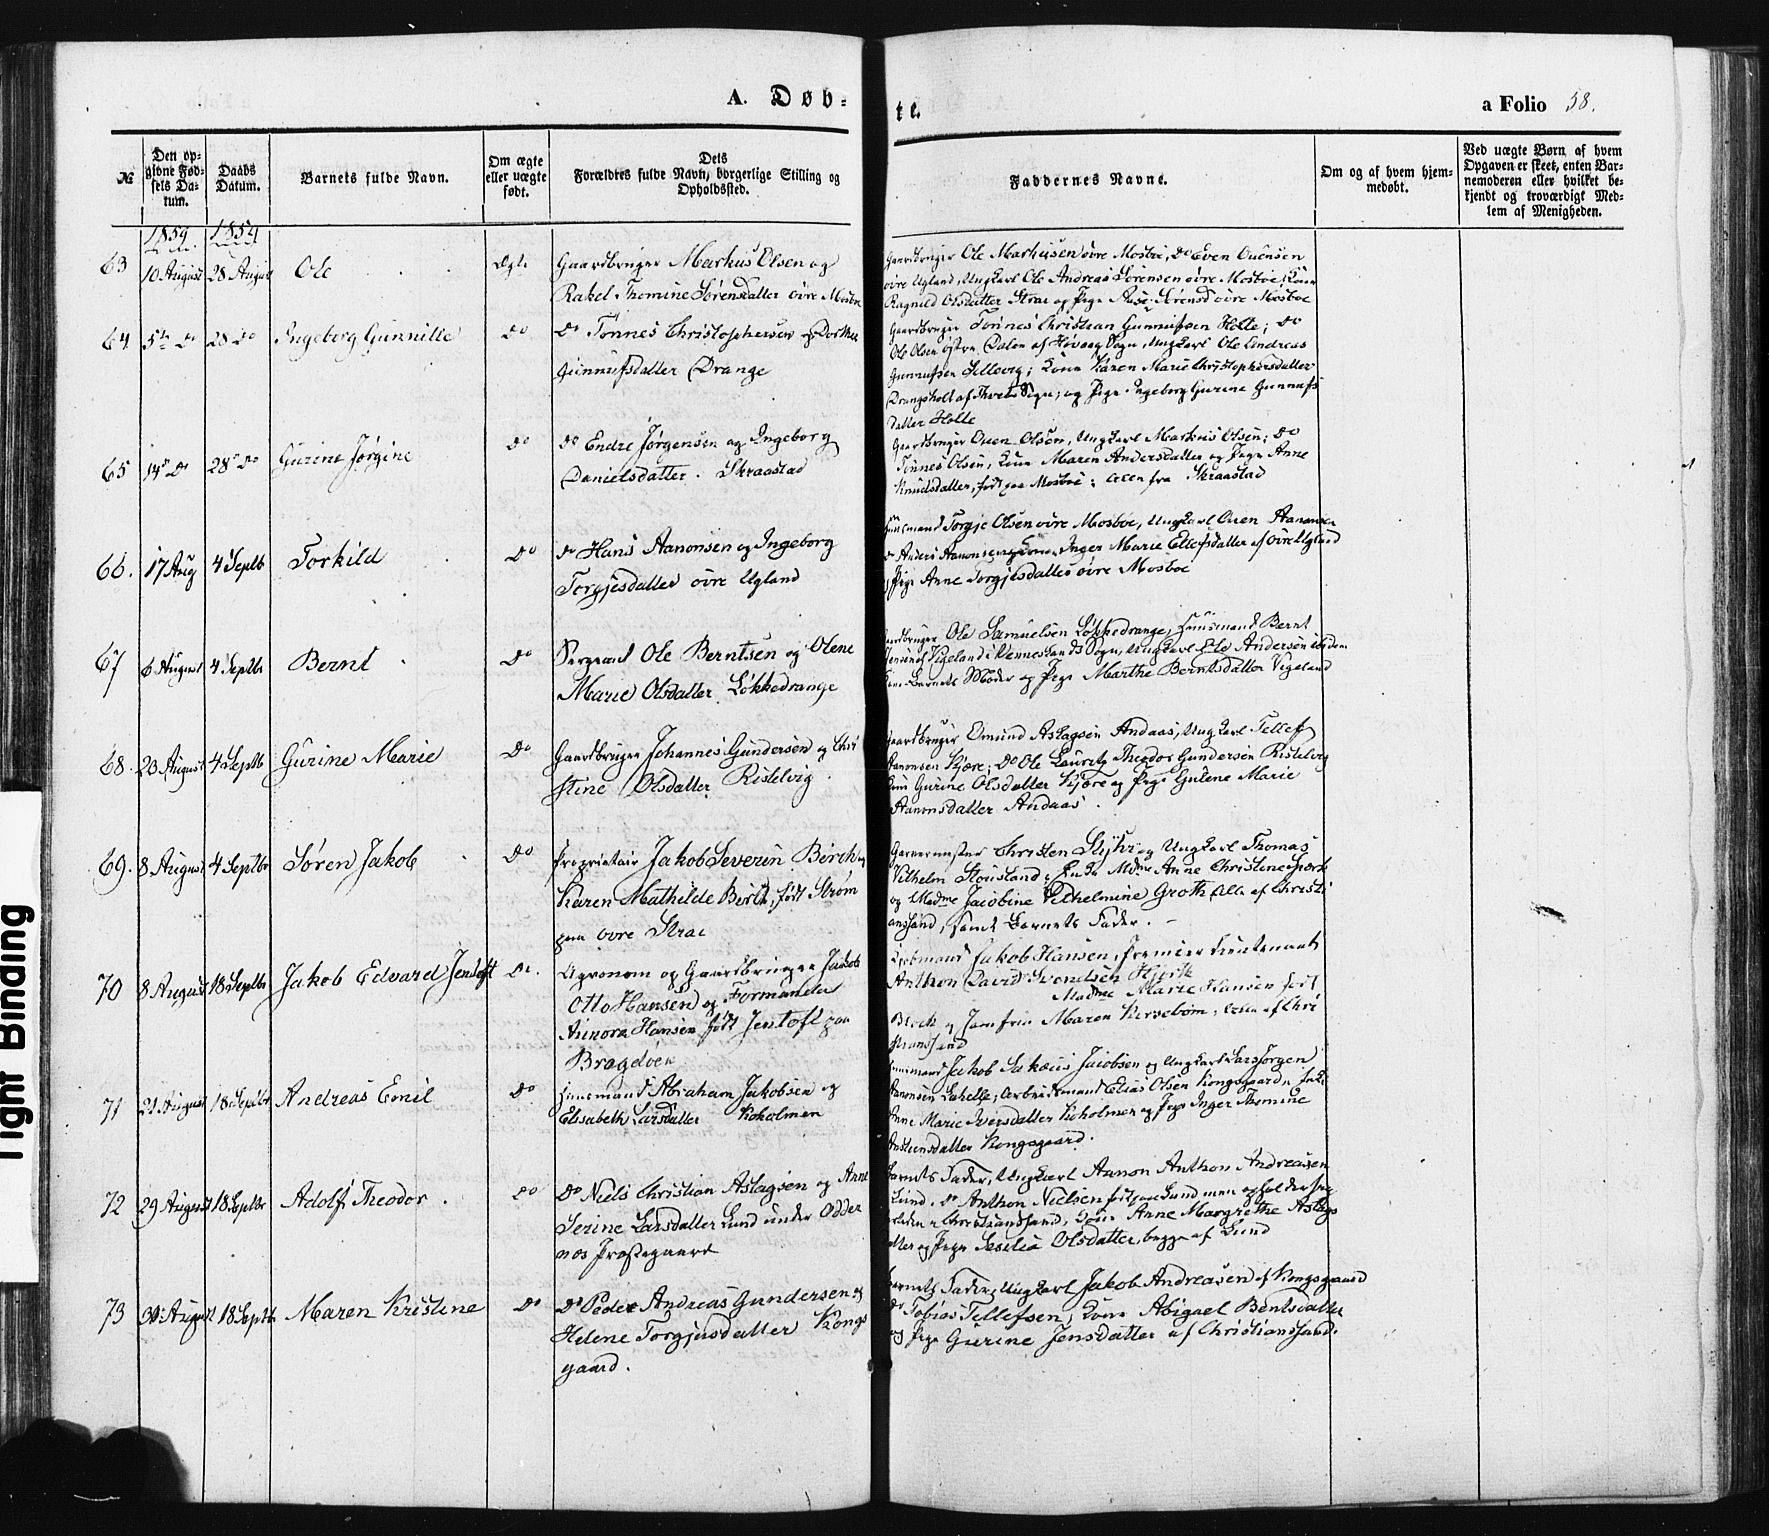 A. Døb-
te.
a Folio 58.
№
Den op-
givne Fød-
sels Da-
tum.
Daabs
Datum.
Barnets fulde Navn.
Om ægte
eller uægte
født.
Dets
Forældres fulde Navn, borgerlige Stilling og
Opholdssted.
Faddernes Navne.
Om og af hvem hjem-
medøbt.
Ved uægte Børn af hvem
Opgaven er skeet, enten Bar-
nemoderen eller hvilket be-
kjendt og troværdigt Med-
lem af Menigheden.
1859 1859
63 10 August 28 August Ole Ægte
Gaardbruger Markus Olsen og
Rakel Thomine Sørensdatter øvre Mosbøe
Gaardbruger Ole Markusen øvre Mosbøe, Do Even Ouensen
øvre Ugland, Ungkarl Ole Andreas Sørensen øvre Mosbøe, Kone
Ragnild Olsdatter Strai og Pige Aase Sørensd øvre Mosbøe
64 5te Do 28 Do Ingeborg Gunnille Do
Do Tønnes Christophersen og Dorthea
Gunnufsdatter Drange
Gaardbruger Tønnes Christian Gunnufsen Holte; Do
Ole Olsen østre Dalen af Høvaag Sogn, Ungkarl Ole Andreas
Gunnufsen; Kone Karen Marie Christophersdatter
Drangsholt af Tveit Sogn; og Pige Ingeborg Gurine Gunnufs
datter Holte
65 14de Do 28de Do Gurine Jørgine Do
Do Endre Jørgensen og Ingeborg
Danielsdatter. Skraastad
Gaardbruger Ouen Olsen, Ungkarl Markus Olsen; Do
Tønnes Olsen, Kone Maren Andersdatter og Pige Anne
Knudsdatter, født paa Mosbøe; alle fra Skraastad
66. 17 Aug 4 Septb Torkild Do
Do Hans Aanonsen og Ingeborg
Torgjesdatter øvre Ugland
Huusmand Torgje Olsen øvre Mosbøe, Ungkarl Ouen Aanonsen
Do Anders Aanonsen og Kone Inger Marie Ellefsdatter af øvre Ugland
og Pige Anne Torgjesdatter øvre Mosbøe
67 6 August 4 Septbr Bernt Do
Sergeand Ole Berntsen og Olene
Marie Olsdatter Løkkedrange
Gaardbruger Ole Samuelsen Løkkedrange, Huusmand Bernt
Jensen af Vigeland i Venneslands Sogn, Ungkarl Ole Andersen ibidem
Kone Barnets Moder og Pige Marthe Berntsdatter Vigeland
68. 23 August 4 Septb Gurine Marie Do
Gaardbruger Johannes Gundersen og Chri
stine Olsdatter Ristelvig.
Gaardbruger Omund Aslagsen Andaas, Ungkarl Tellef
Aanonsen Kjære; Do Ole Lauritz Theodor Gundersen Ristelvig
Kone Gurine Olsdatter Kjære og Pige Gulene Marie
Aanonsdatter Andaas.
69. 8 August 4 Septbr Søren Jakob Do
Proprietair Jakob Severin Birch og
Karen Mathilde Birch, født Strøm
paa øvre Strai
Garvermester Christen og Ungkarl Thomas
Vilhelm Stousland, Mdme Anne Christine
og Madme Jacobine Vilhelmine Groth, alle af Christi
ansand, samt Barnets Fader. –
70 8 August 18 Septbr Jakob Edvard Jentoft Do.
Agronom og Gaardbruger Jakob
Otto Hansen og
Hansen født Jentoft paa
Bragdøen
Kjøbmand Jakob Hansen, Premier Lieutenant
Anthon David Svendsen
Madme Marie Hansen født
og Jomfru Maren; alle af Chri
stianssand
71 21 August 18 Septbr Andreas Emil Do
Huusmand Abraham Jakobsen og
Elisabeth Larsdatter Kokolmen
Huusmand Jakob Jacobsen og Ungkarl Lars Jørgen
Aanonsen, Arbeidsmand Elias Olsen Kongsgaard,
Anne Marie Iversdatter Kokolmen og Pige Inger Thomine
Kongsgaard.
72 29 August 18 Septbr Adolf Theodor. Do
Do Niels Christian Aslagsen og Anne
Serine Larsdatter Lund under Odder
næs Præstegaard
Barnets Fader, Ungkarl Aanon Anthon Andreasen
Lund, Do Anthon Nielsen født paa Lund men opholder sig
i Christianssand, Kone Anne Margrethe Aslags
datter og Pige Olsdatter, begge af Lund
73 30 August 18 Septb Maren Kristine Do
Do Peder Andreas Gundersen og
Helene Torgjusdatter Kongs
gaard.
Barnets Fader, Ungkarl Jakob Andreasen af Kongsgaard
Do Tobias Tellefsen, Kone Abigael Bentsdatter
og Pige Gurine Jensdatter af Christianssand.
Tight Binding